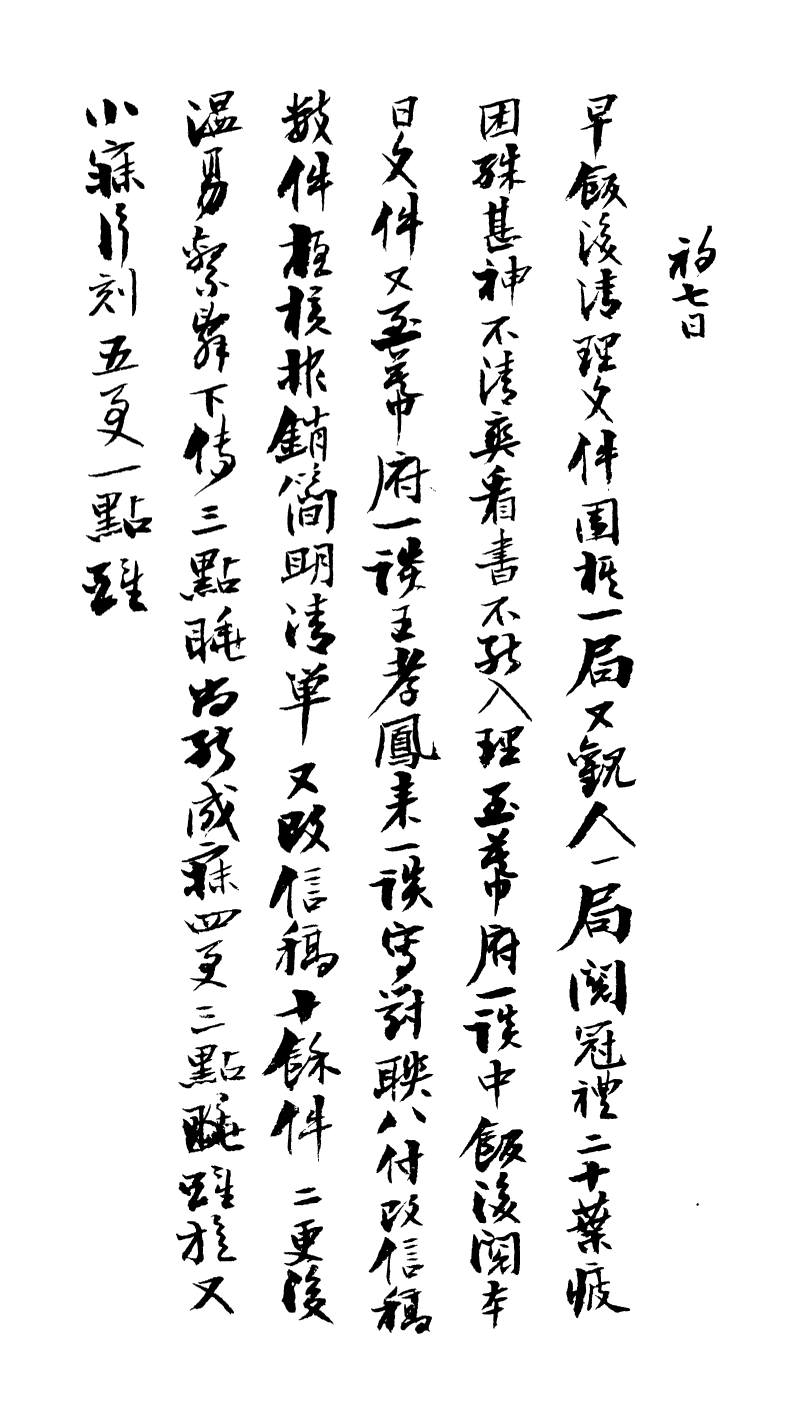 初七日
早飯後清理文件圍棋一局又觀人一局閱冠禮二十葉疲
困殊甚神不清爽看書不能入理至幕府一談中飯後閱本
日文件又至幕府一談王孝鳳來一談寫對聯八付改信稿
數件極核報銷簡明清單又改信稿十餘件二更後
溫易繫辭下傳三點睡尚能成寐四更三點醒於又
小寐片刻五更一點醒